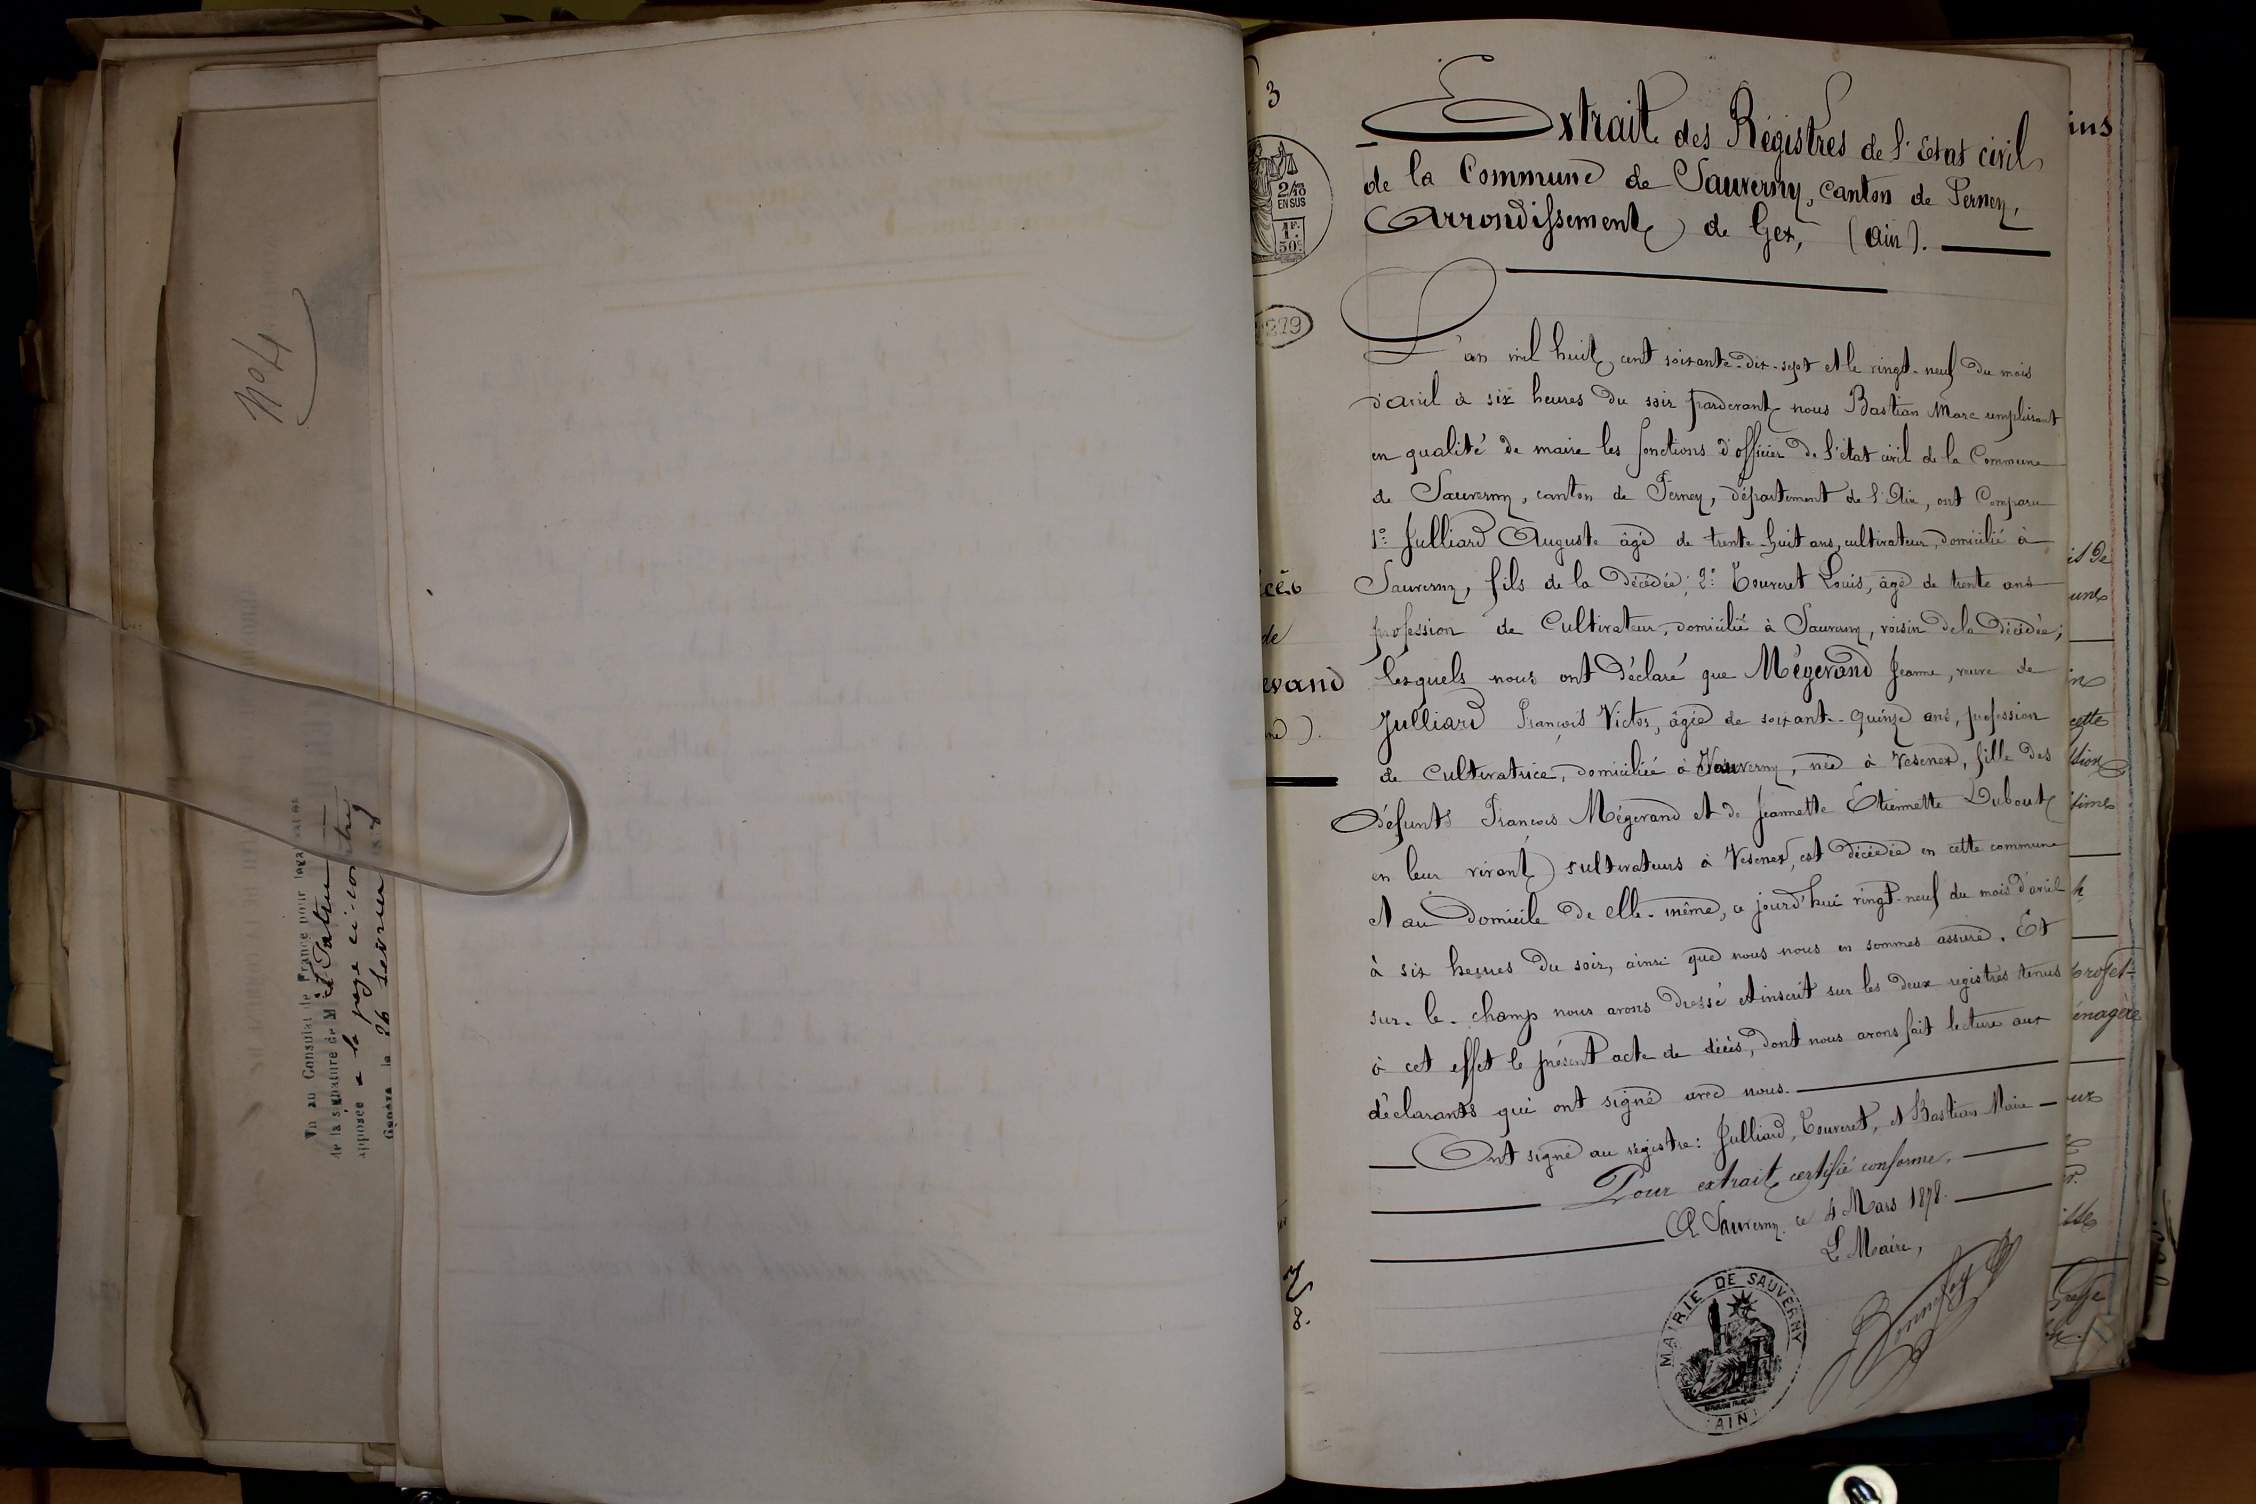 N° 4
Vu au Consulat de France pour légalisation
de la signature de M
apposée à la page ci-contre
Genève le 26 février
3
2/10
EN SUS
1F.
50c
279
Extrait des Régistres de l'Etat civil
de la Commune de Sauverny, Canton de Ferney,
Arrondissement de Gex, (Ain).
L'an mil huit cent soixante-dix-sept et le vingt-neuf du mois
d'avril à six heures du soir pardevant nous Bastian Marc remplissant
en qualité de maire les fonctions d'officier de l'état civil de la Commune
de Sauverny, canton de Ferney, département de l'Ain, ont Comparu
1° Julliard Auguste âgé de trente-huit ans, cultivateur, domicilié à
Sauverny, fils de la décédée; 2° Touveret Louis, âgé de trente ans
profession de Cultivateur, domicilié à Sauverny, voisin de la décédée;
lesquels nous ont déclaré que Mégevand Jeanne, veuve de
Julliard François Victor, âgée de soixante-quinze ans, profession
de Cultivatrice, domiciliée à Sauverny, née à Vesenex, fille des
défunts François Mégevand et de Jeannette Etiennette Dubout
en leur vivant cultivateurs à Vesenex, est décédée en cette commune
et au domicile de elle-même, ce jourd'hui vingt-neuf du mois d'avril
à six heures du soir, ainsi que nous nous en sommes assuré. Et
sur-le-champ nous avons dressé et inscrit sur les deux registres tenus
à cet effet le présent acte de décès, dont nous avons fait lecture aux
déclarants qui ont signé avec nous.
Ont signé au régistre: Julliard, Touveret, et Bastian Maire
Pour extrait certifié conforme.
A Sauverny ce 4 Mars 1878.
Le Maire,
MAIRIE DE SAUVERNY
(AIN)